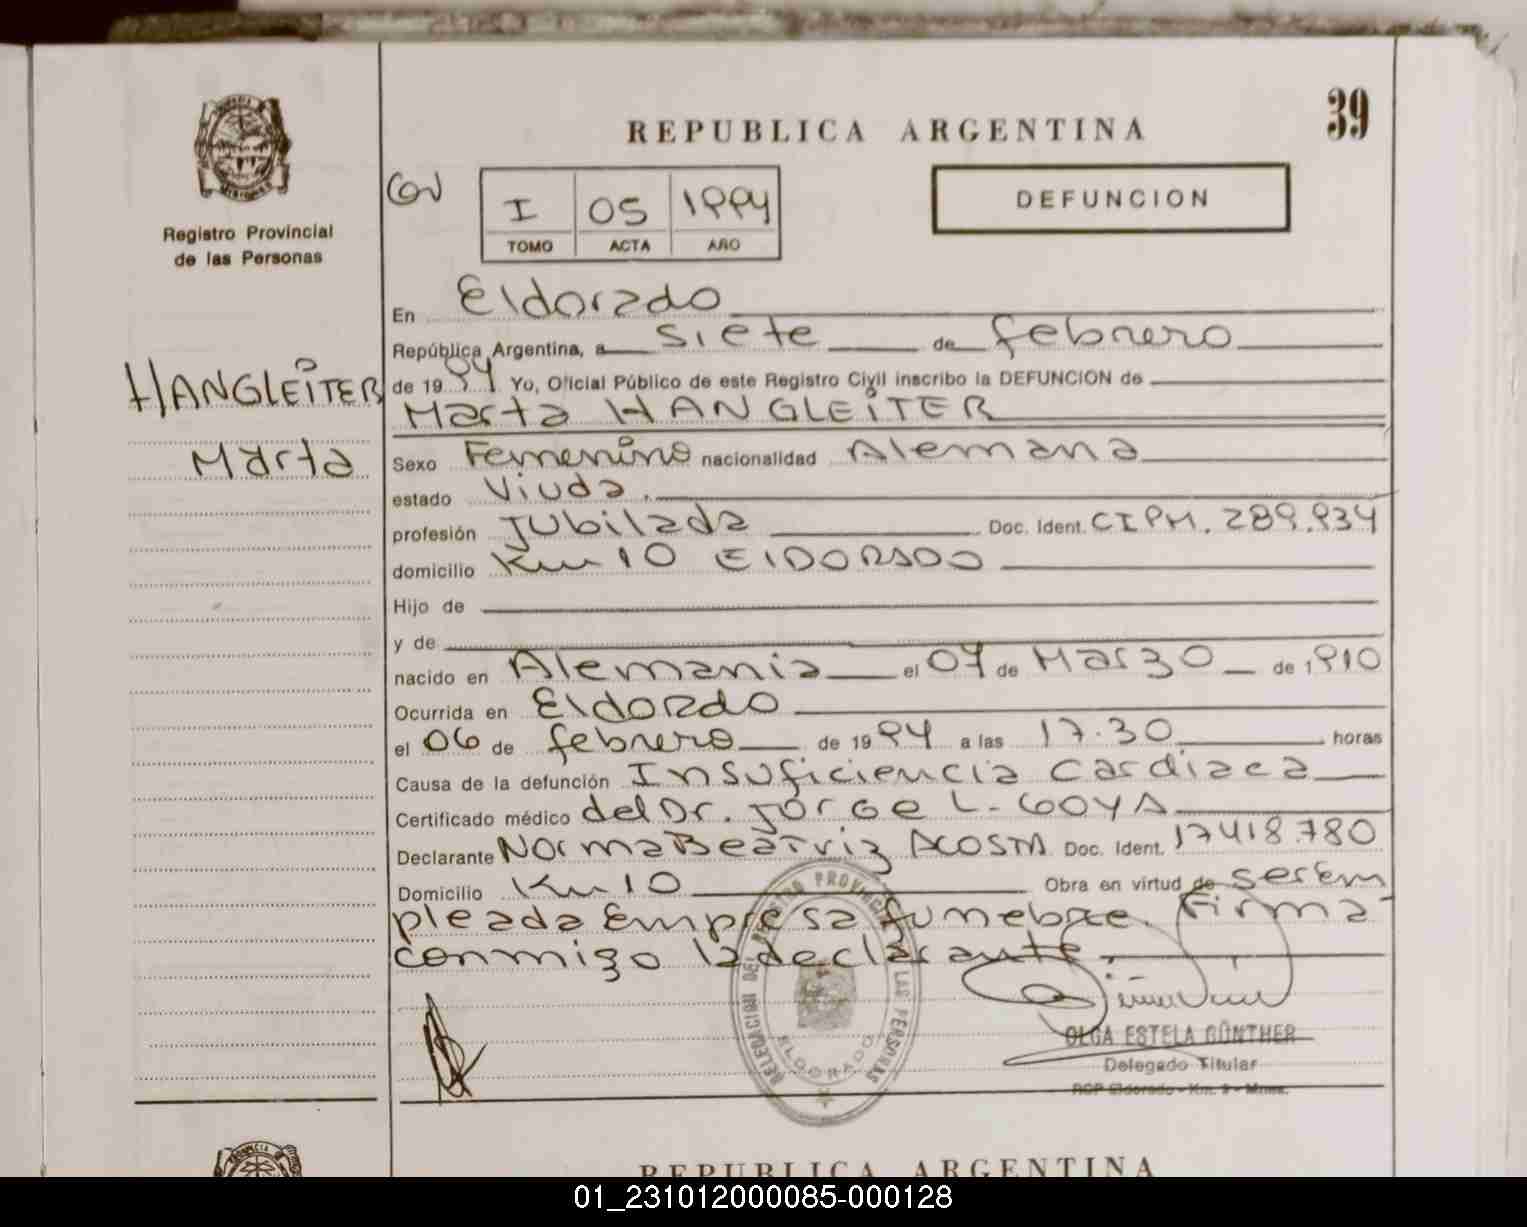 39
REPUBLICA ARGENTINA
DEFUNCION
Registro Provincial
de las Personas
I 05 1994
TOMO ACTA AÑO
En Eldorado
República Argentina, a siete de febrero
de 1994 Yo, Oficial Público de este Registro Civil inscribo la DEFUNCION de
HANGLEITER
Marta
Marta HANGLEITER
Sexo Femenino nacionalidad Alemana
estado Viuda.
profesión Jubilada Doc. Ident. CIPM. 289.934
domicilio Km 10 ELDORADO
Hijo de
y de
nacido en Alemania el 07 de Marzo de 1910
Ocurrida en Eldorado
el 06 de febrero de 1994 a las 17.30 horas
Causa de la defunción Insuficiencia Cardiaca
Certificado médico del Dr. Jorge L. GOYA
Declarante Norma Beatriz ACOSTA Doc. Ident. 17418.780
Domicilio Km 10 Obra en virtud de ser em
pleada Empresa funebre. Firma
conmigo la declarante.
DELEGACION DEL REGISTRO PROVINCIAL DE LAS PERSONAS
ELDORADO
OLGA ESTELA GÜNTHER
Delegado Titular
RCP Eldorado - Km. 9 - Mnes.
REPUBLICA ARGENTINA
01_231012000085-000128